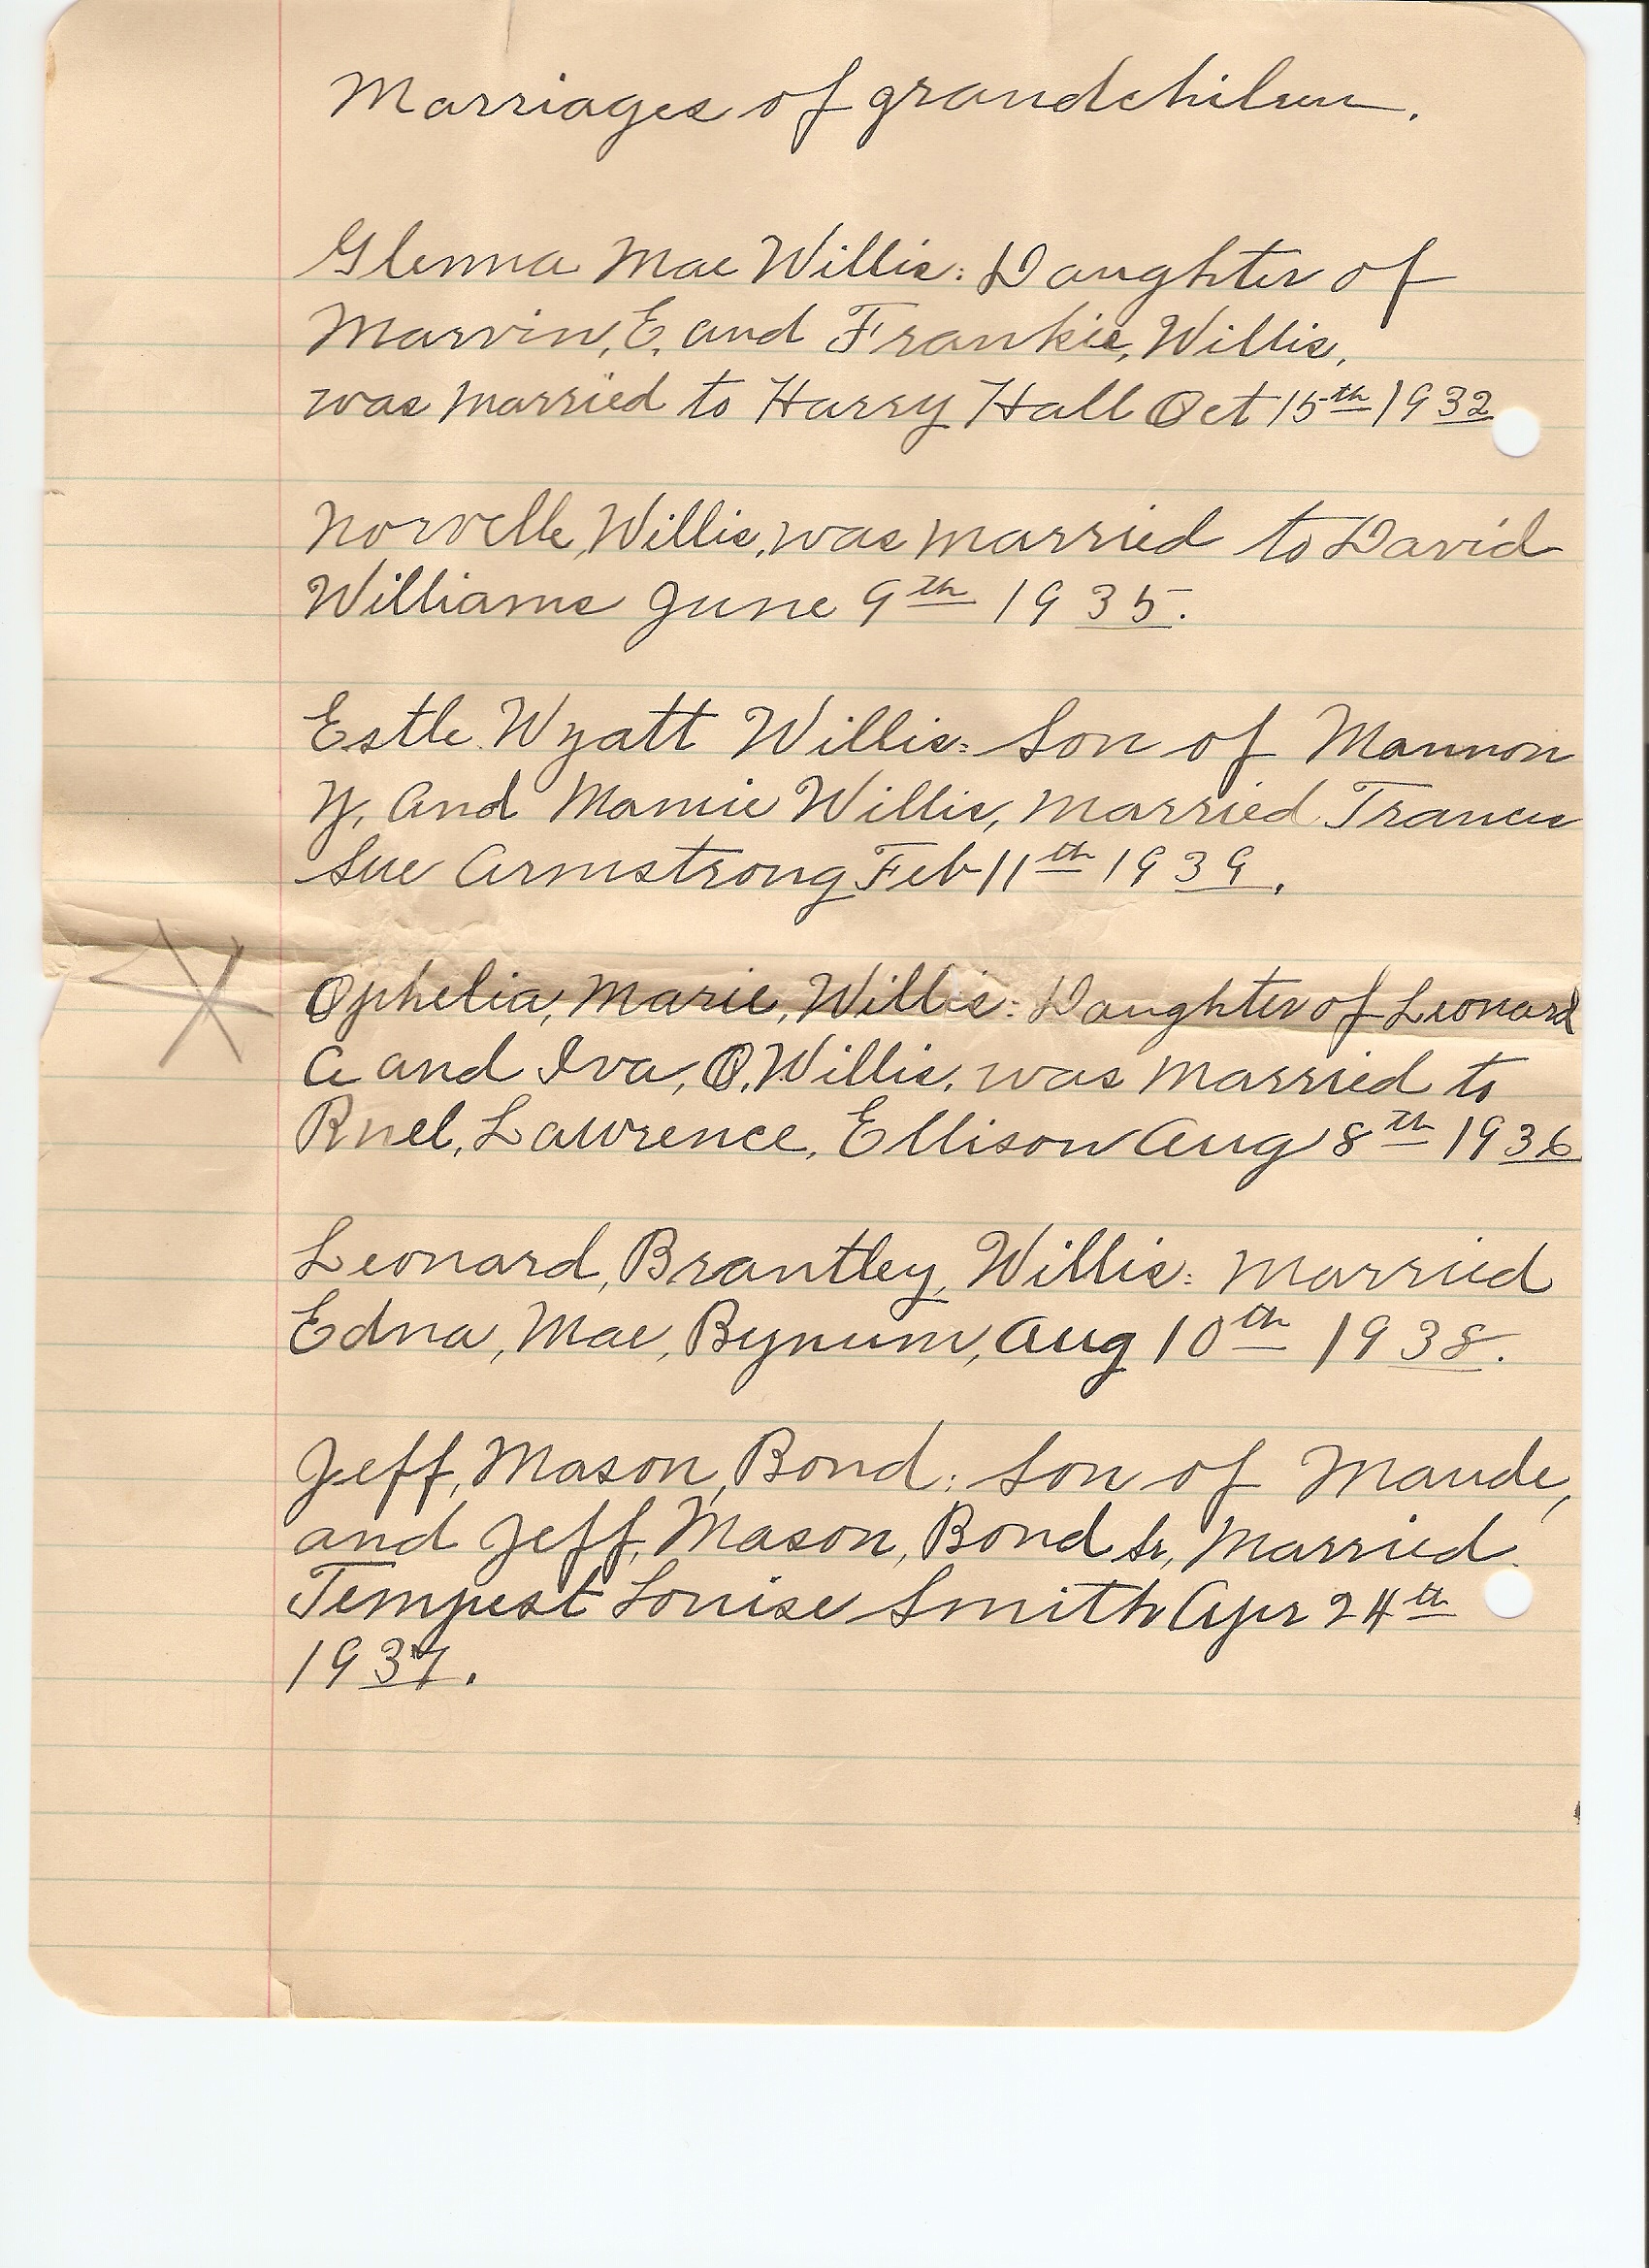 Marriages of grandchilren.
Glenna Mae Willis: Daughter of
Marvin, E. and Frankie, Willis,
was married to Harry Hall Oct 15th 1932
Norvelle, Willis, was married to David
Williams June 9th 1935.
Estle Wyatt Willis: Son of Mannon
Y, and Mamie Willis, married Francis
Sue Armstrong Feb 11th 1939.
Ophelia, Marie, Willis: Daughter of Leonard
A and Iva, O. Willis, was married to
Ruel, Lawrence, Ellison Aug 8th 1936
Leonard, Brantley, Willis: Married
Edna, Mae, Bynum, Aug 10th 1938.
Jeff, Mason, Bond: Son of Maude,
and Jeff, Mason, Bond Sr, Married
Tempest Louise Smith Apr 24th
1937.